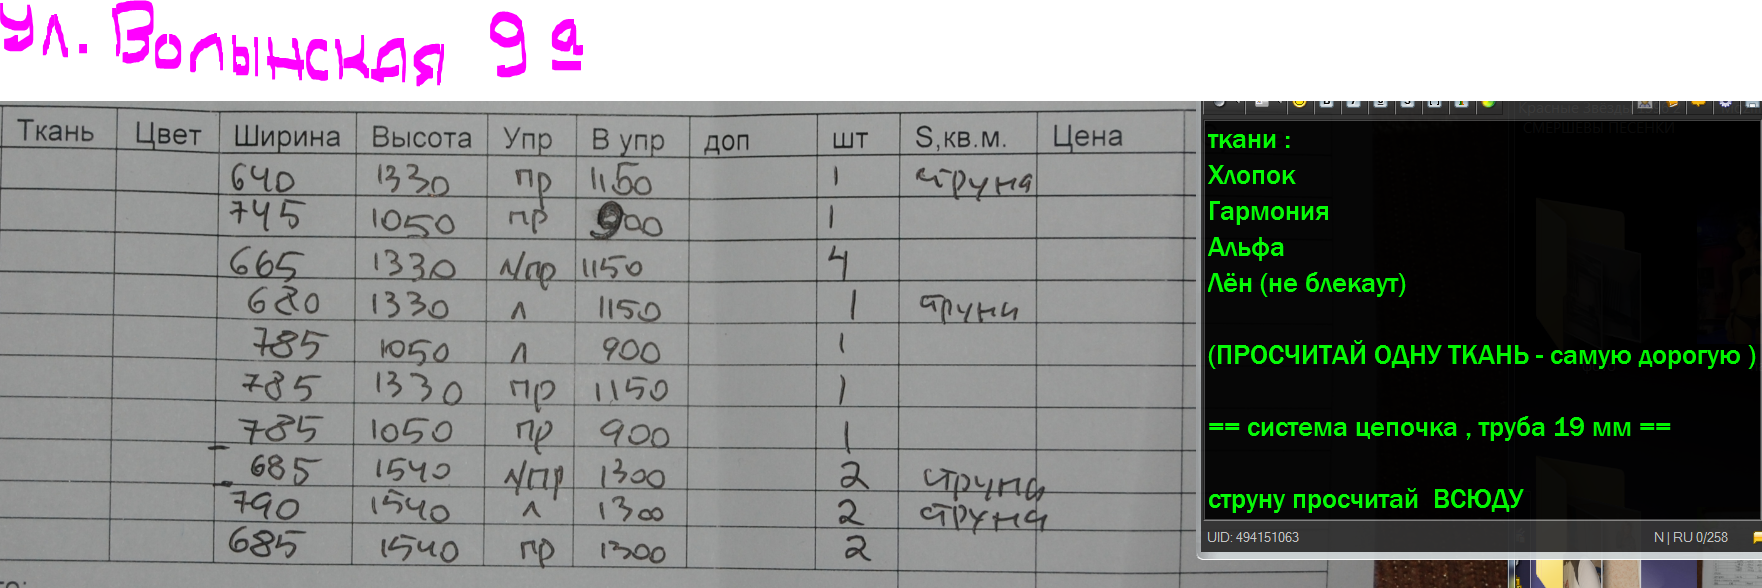 ул. Волынская 9а
Ткань Цвет Ширина Высота Упр В упр доп шт S,кв.м. Цена
640 1330 пр 1150 1 струна
745 1050 пр 900 1
665 1330 л/пр 1150 4
680 1330 л 1150 1 струна
785 1050 л 900 1
785 1330 пр 1150 1
785 1050 пр 900 1
685 1540 л/пр 1300 2 струна
790 1540 л 1300 2 струна
685 1540 пр 1300 2
ткани :
Хлопок
Гармония
Альфа
Лён (не блекаут)
(ПРОСЧИТАЙ ОДНУ ТКАНЬ - самую дорогую )
== система цепочка , труба 19 мм ==
струну просчитай ВСЮДУ
UID: 494151063 N | RU 0/258